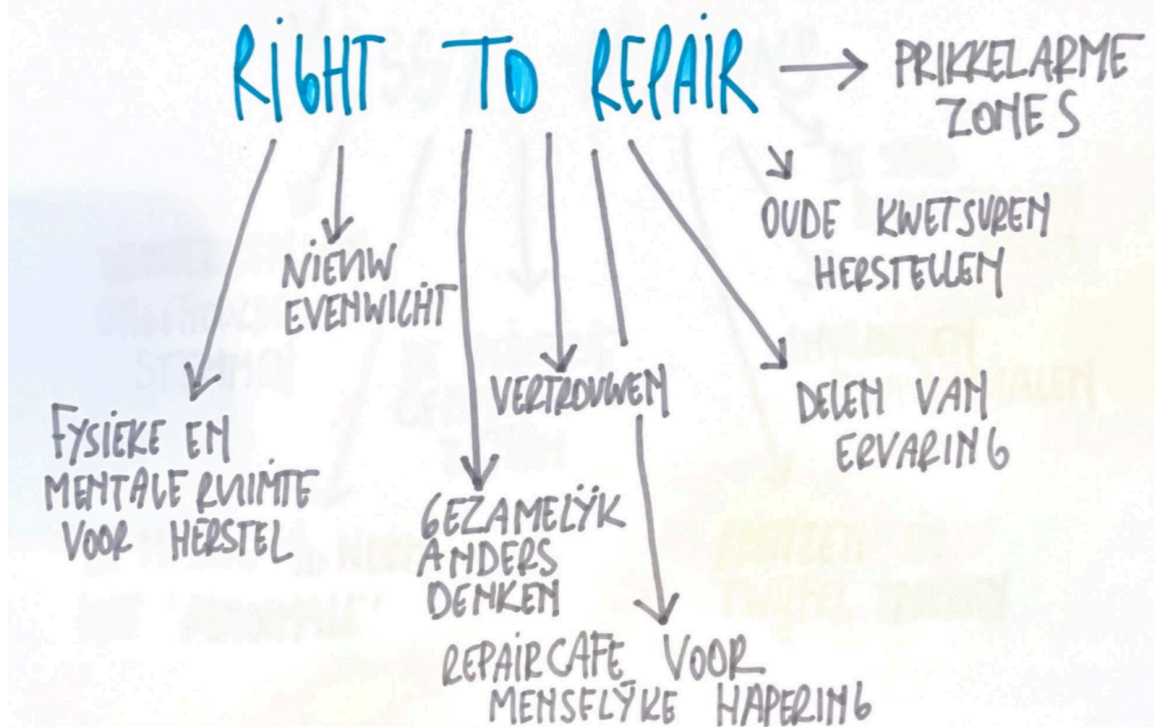 RIGHT TO REPAIR
PRIKKELARME
ZONES
OUDE KWETSUREN
HERSTELLEN
NIEUW
EVENWICHT
DELEN VAN
ERVARING
VERTROUWEN
FYSIEKE EN
MENTALE RUIMTE
VOOR HERSTEL
GEZAMELIJK
ANDERS
DENKEN
REPAIRCAFE VOOR
MENSELIJKE HAPERING